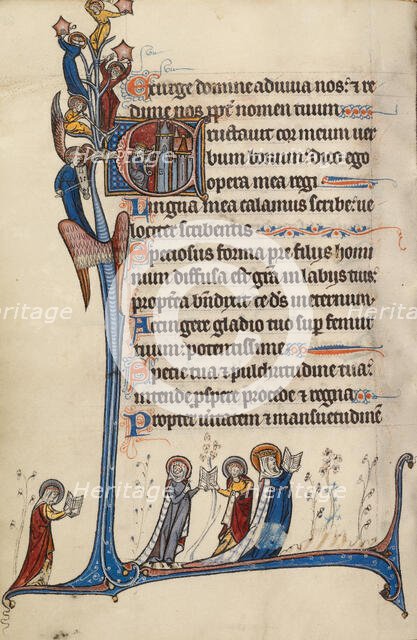 Exurge domine adiuua nos: et re
dime nos ppt nomen tuum
Eructauit cor meum uer
bum bonum dico ego
opera mea regi
Lingua mea calamus scribe: ue
lociter scribentis
Speciosus forma pre filiis homi
num diffusa est gra in labiis tuis:
propterea bndixit te ds in eternum
Accingere gladio tuo sup femur
tuum: potentissime
Specie tua et pulchritudine tua:
intende pspere procede et regna
Propter ueritatem et mansuetudinē
Heritage
Heritage
Heritage